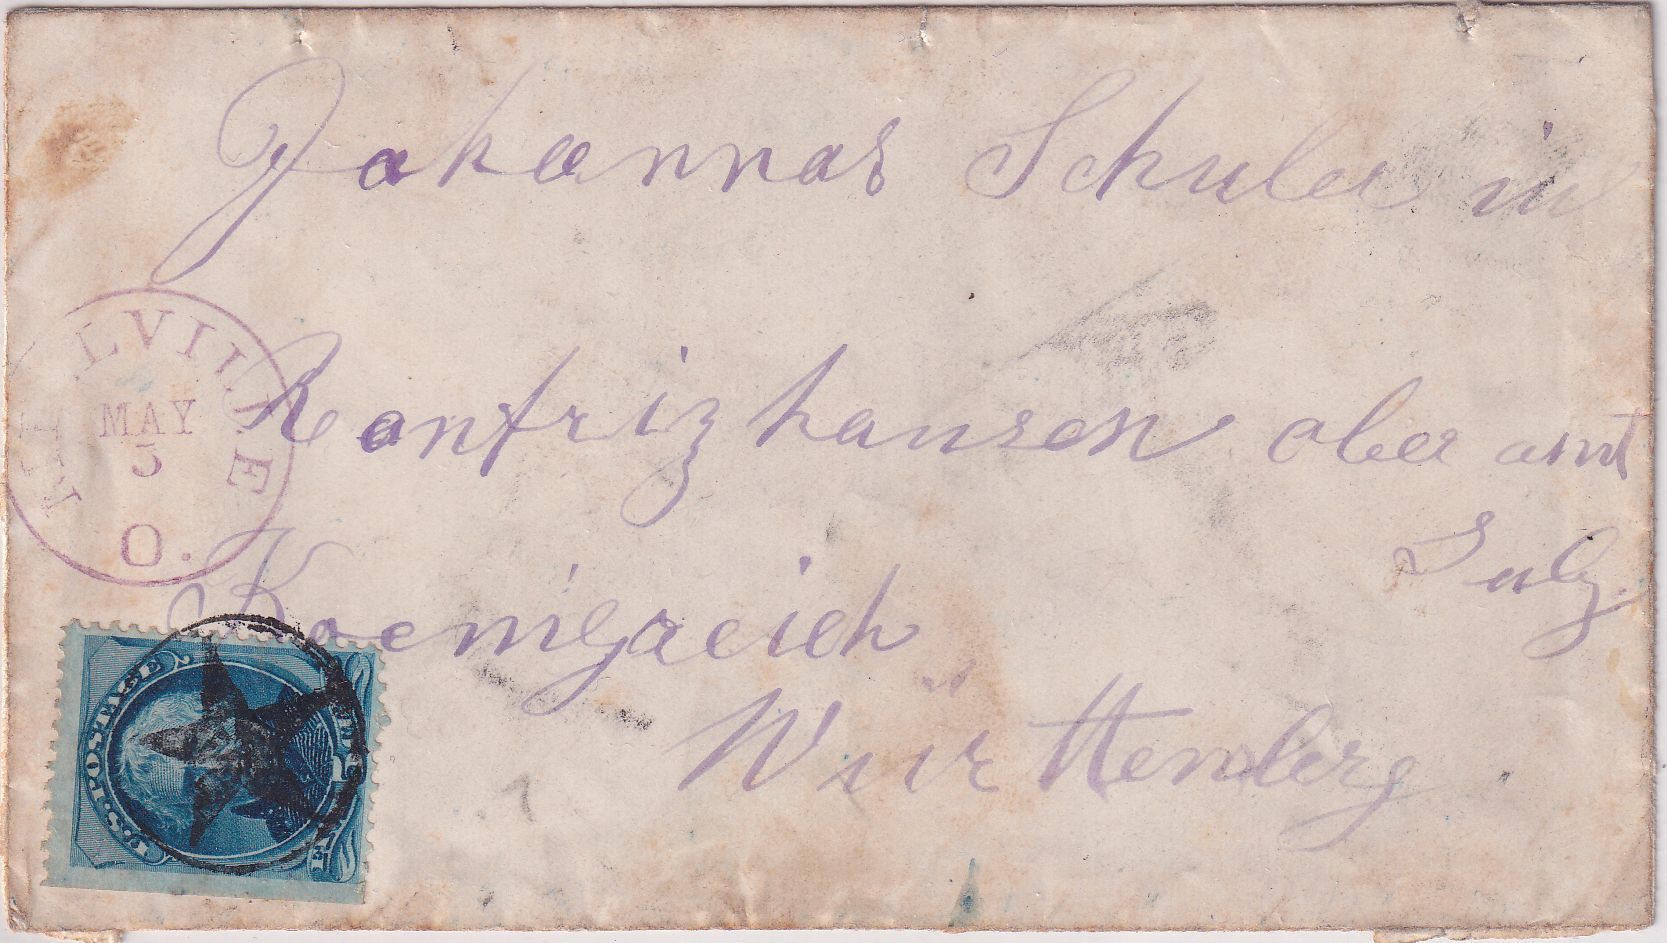 Johannas Schuler in
Ranfrizhausen ober amt
Sulz.
Koenigreich
Württenberg
LVILLE
MAY
5
O.
U.S. POSTAGE